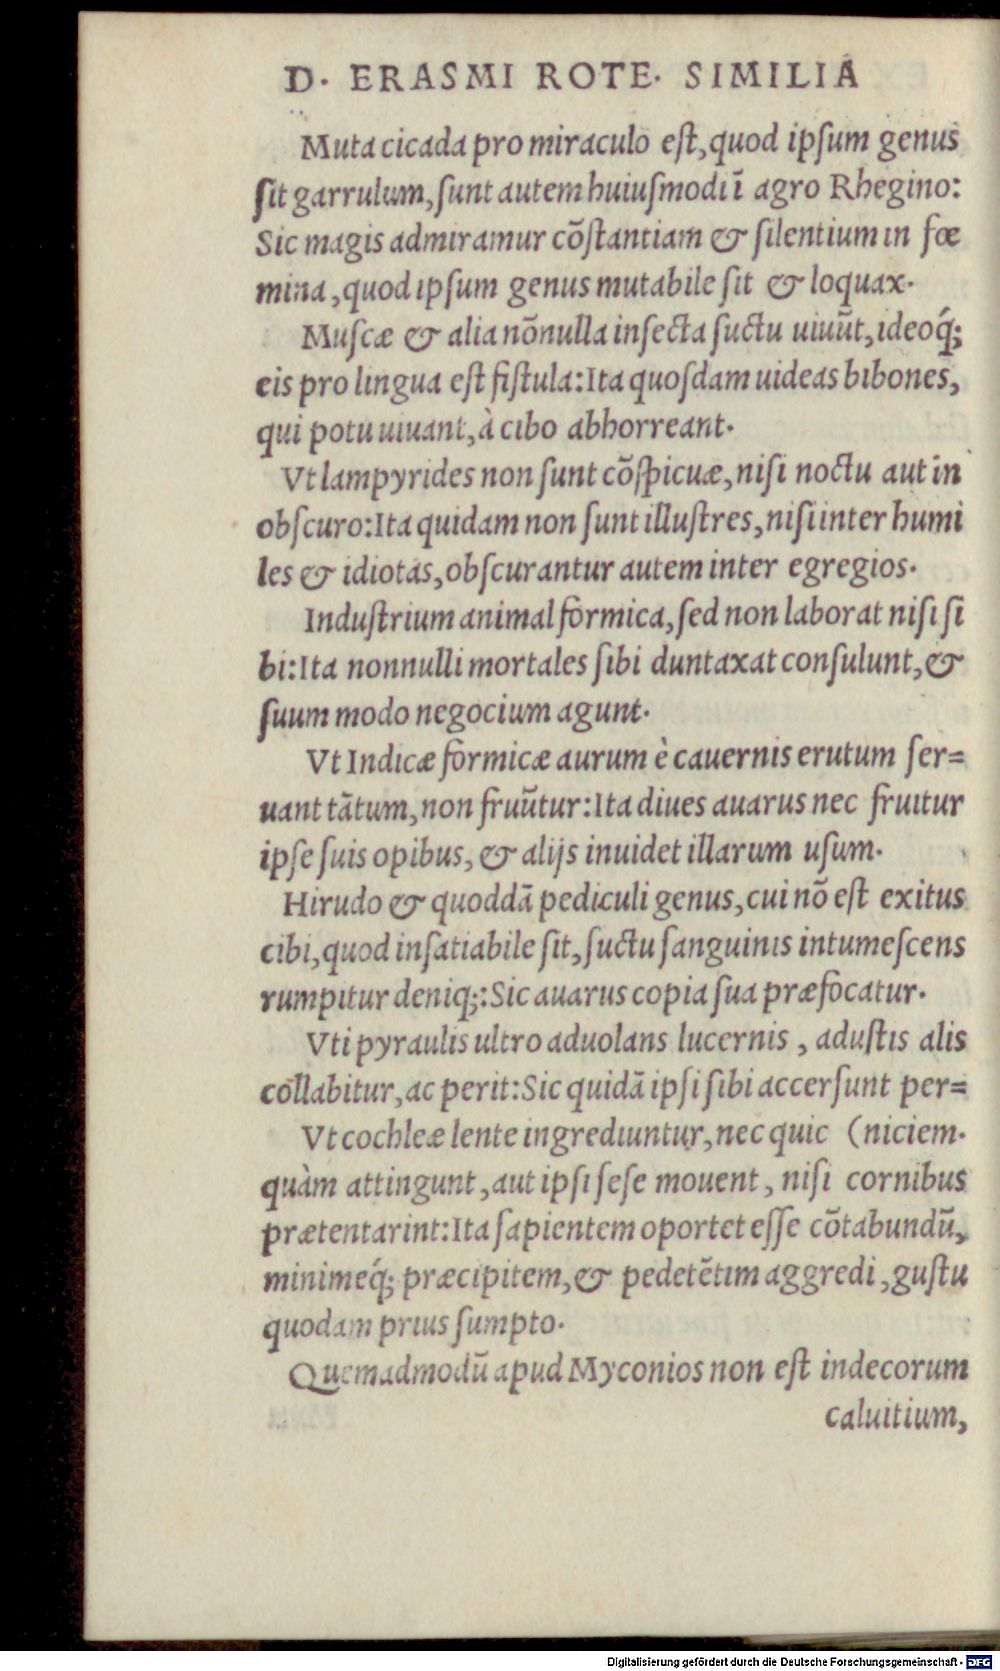 D. ERASMI ROTE. SIMILIA
Muta cicada pro miraculo eſt, quod ipſum genus
ſit garrulum, ſunt autem huiuſmodi ĩ agro Rhegino:
Sic magis admiramur cõſtantiam & ſilentium in fœ
mina, quod ipſum genus mutabile ſit & loquax.
Muſcæ & alia nõnulla inſecta ſuctu uiuũt, ideoq́;
eis pro lingua eſt fiſtula: Ita quoſdam uideas bibones,
qui potu uiuant, à cibo abhorreant.
Vt lampyrides non ſunt cõſpicuæ, niſi noctu aut in
obſcuro: Ita quidam non ſunt illuſtres, niſi inter humi
les & idiotas, obſcurantur autem inter egregios.
Induſtrium animal formica, ſed non laborat niſi ſi
bi: Ita nonnulli mortales ſibi duntaxat conſulunt, &
ſuum modo negocium agunt.
Vt Indicæ formicæ aurum è cauernis erutum ſer=
uant tãtum, non fruũtur: Ita diues auarus nec fruitur
ipſe ſuis opibus, & alijs inuidet illarum uſum.
Hirudo & quoddã pediculi genus, cui nõ eſt exitus
cibi, quod inſatiabile ſit, ſuctu ſanguinis intumeſcens
rumpitur deniq;: Sic auarus copia ſua præfocatur.
Vti pyraulis ultro aduolans lucernis, aduſtis alis
collabitur, ac perit: Sic quidã ipſi ſibi accerſunt per=
Vt cochleæ lente ingrediuntur, nec quic (niciem.
quàm attingunt, aut ipſi ſeſe mouent, niſi cornibus
prætentarint: Ita ſapientem oportet eſſe cõtabundũ,
minimeq́; præcipitem, & pedetẽtim aggredi, guſtu
quodam prius ſumpto.
Quemadmodũ apud Myconios non eſt indecorum
caluitium,
Digitalisierung gefördert durch die Deutsche Forschungsgemeinschaft - DFG